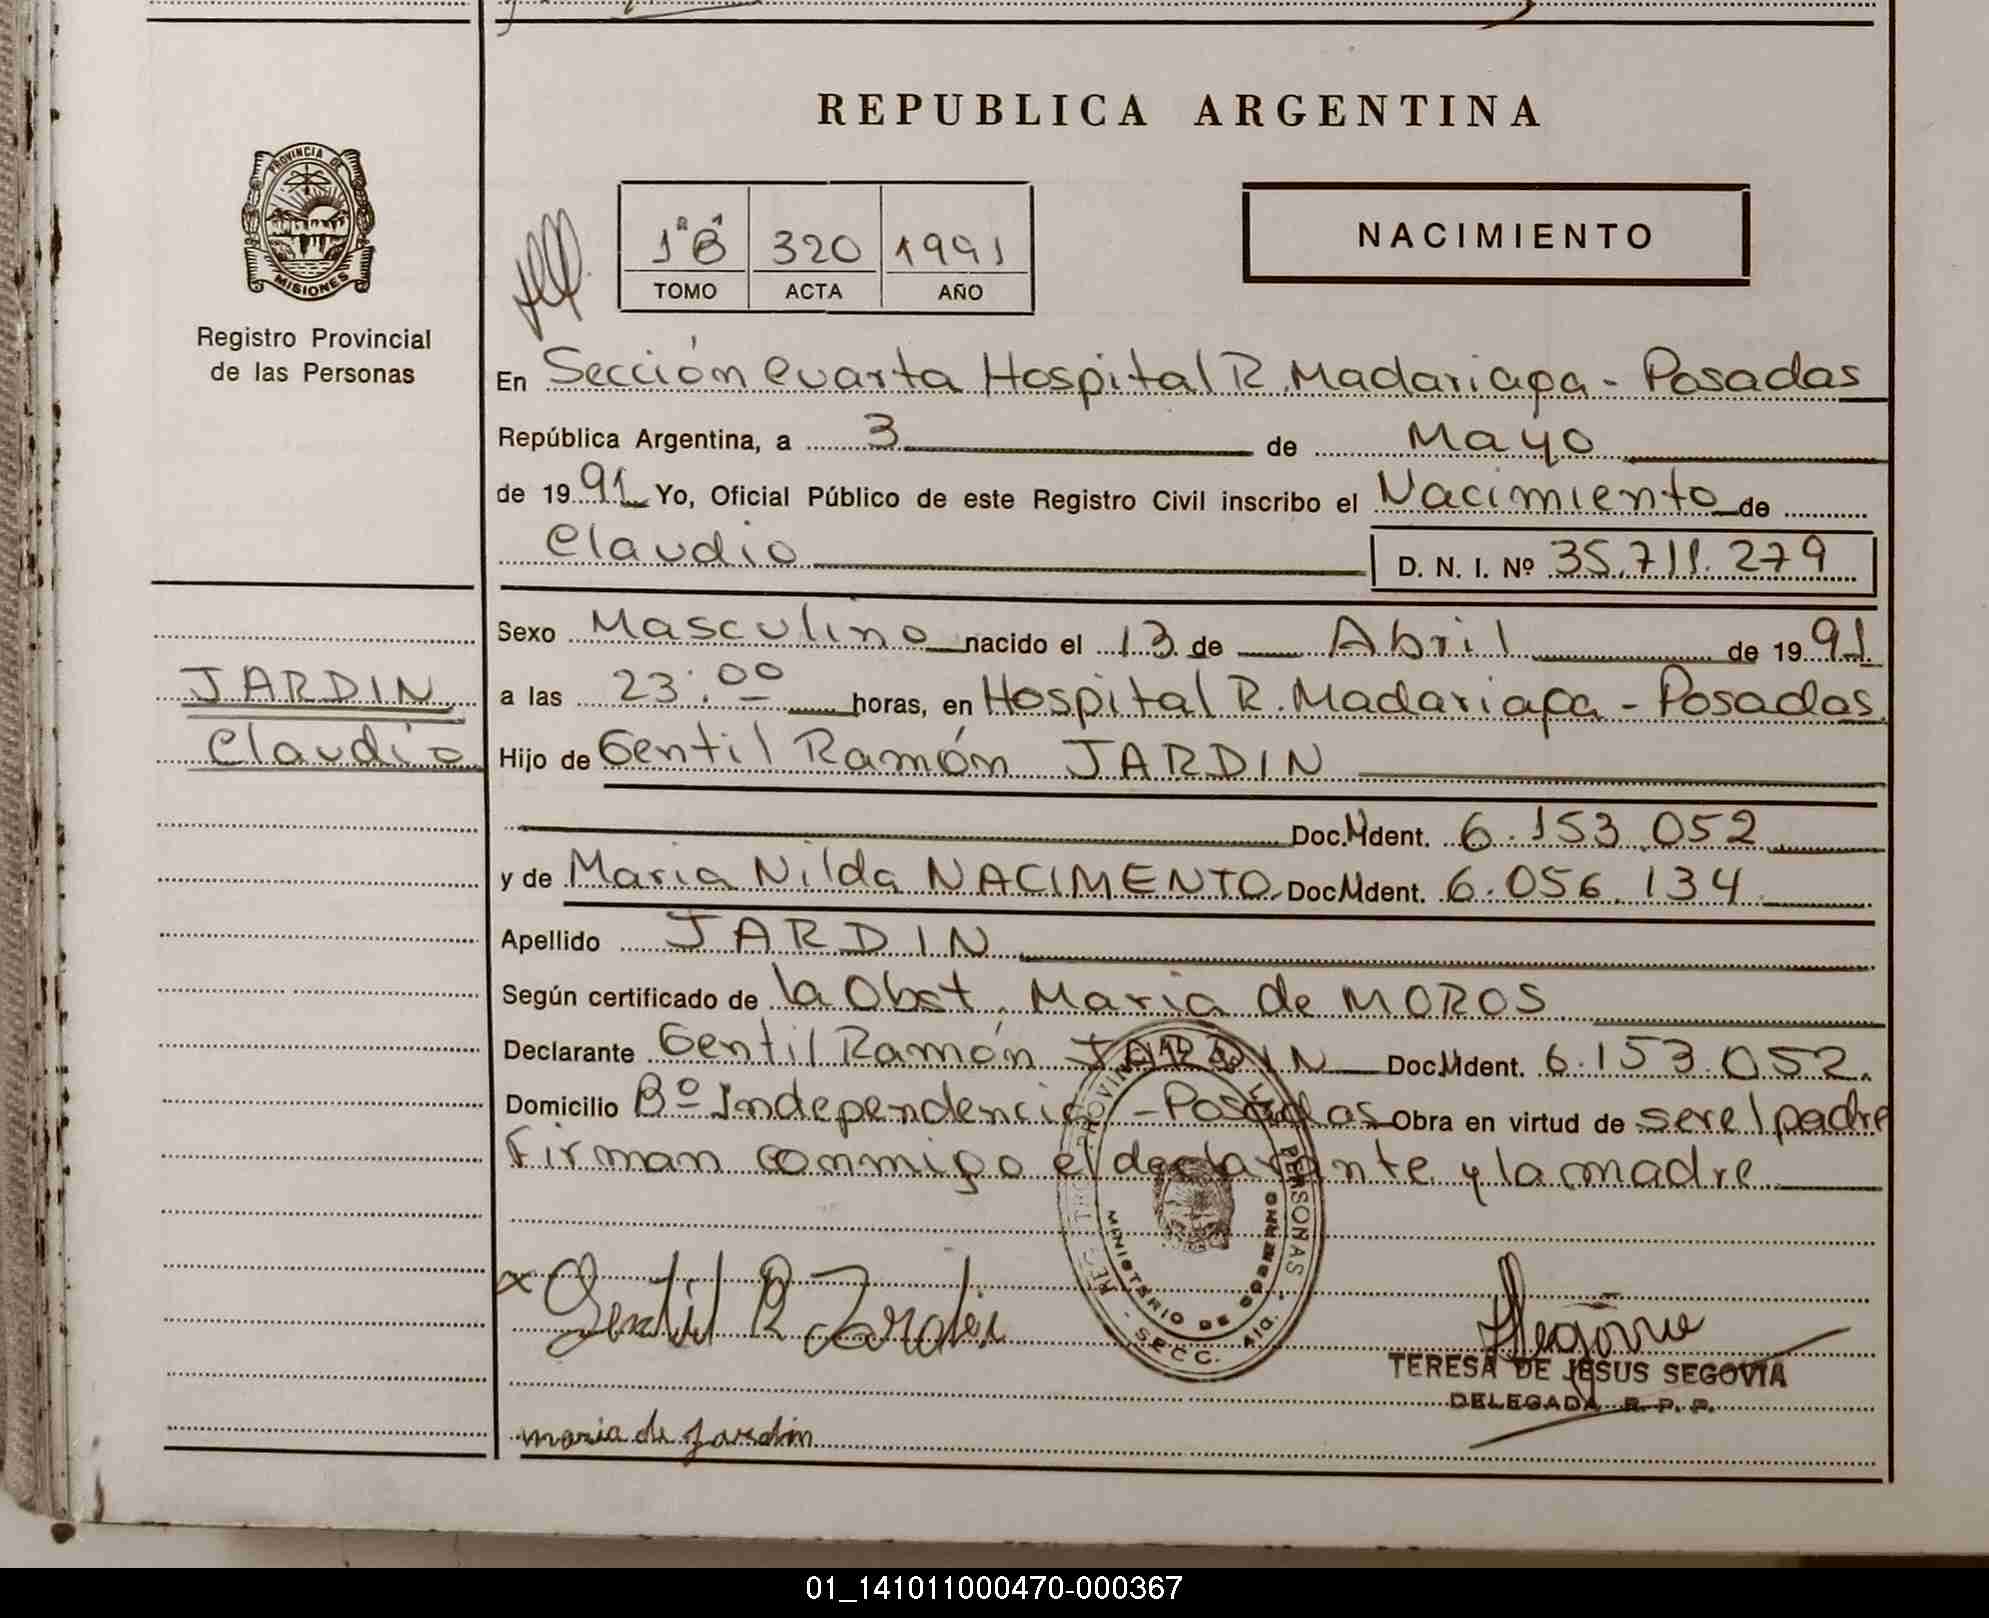 REPUBLICA ARGENTINA
PROVINCIA DE
MISIONES
Registro Provincial
de las Personas
1ª B 320 1991
TOMO ACTA AÑO
NACIMIENTO
En Sección Cuarta Hospital R. Madariaga - Posadas
República Argentina, a 3 de Mayo
de 1991 Yo, Oficial Público de este Registro Civil inscribo el Nacimiento de
Claudio D. N. I. Nº 35.711.279
Sexo Masculino nacido el 13 de Abril de 1991
JARDIN
a las 23:00 horas, en Hospital R. Madariaga - Posadas
Claudio
Hijo de Gentil Ramón JARDIN
Doc. Ident. 6.153.052
y de Maria Nilda NACIMENTO Doc. Ident. 6.056.134
Apellido JARDIN
Según certificado de la Obst. Maria de MOROS
Declarante Gentil Ramón JARDIN Doc. Ident. 6.153.052.
Domicilio Bº Independencia - Posadas Obra en virtud de ser el padre
Firman conmigo el declarante y la madre
REG PROVINCIAL DE LAS PERSONAS - SECC. 4ta.
MINISTERIO DE GOBIERNO
x Gentil R Jardin
TERESA DE JESUS SEGOVIA
DELEGADA R. P. P.
maria de Jardin
01_141011000470-000367